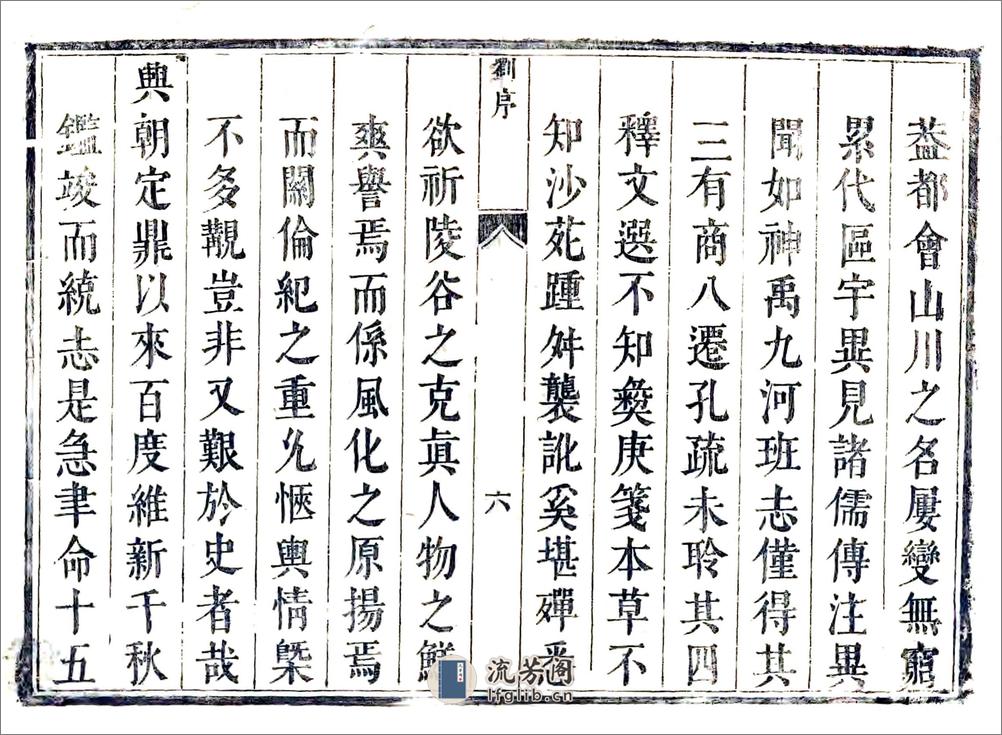 葢都會山川之名屢變無窮
累代區宇異見諸儒傳注異
聞如神禹九河班志僅得其
三有商八遷孔疏未聆其四
釋文選不知彜庚箋本草不
知沙苑踵舛襲訛奚堪殫
劉序
六
欲祈陵谷之克眞人物之鮮
爽譽焉而係風化之原揚焉
而關倫紀之重允愜輿情槩
不多觀豈非又艱於史者哉
興朝定鼎以來百度維新千秋
鑑竣而統志是急聿命十五
流芳阁
lfglib.cn